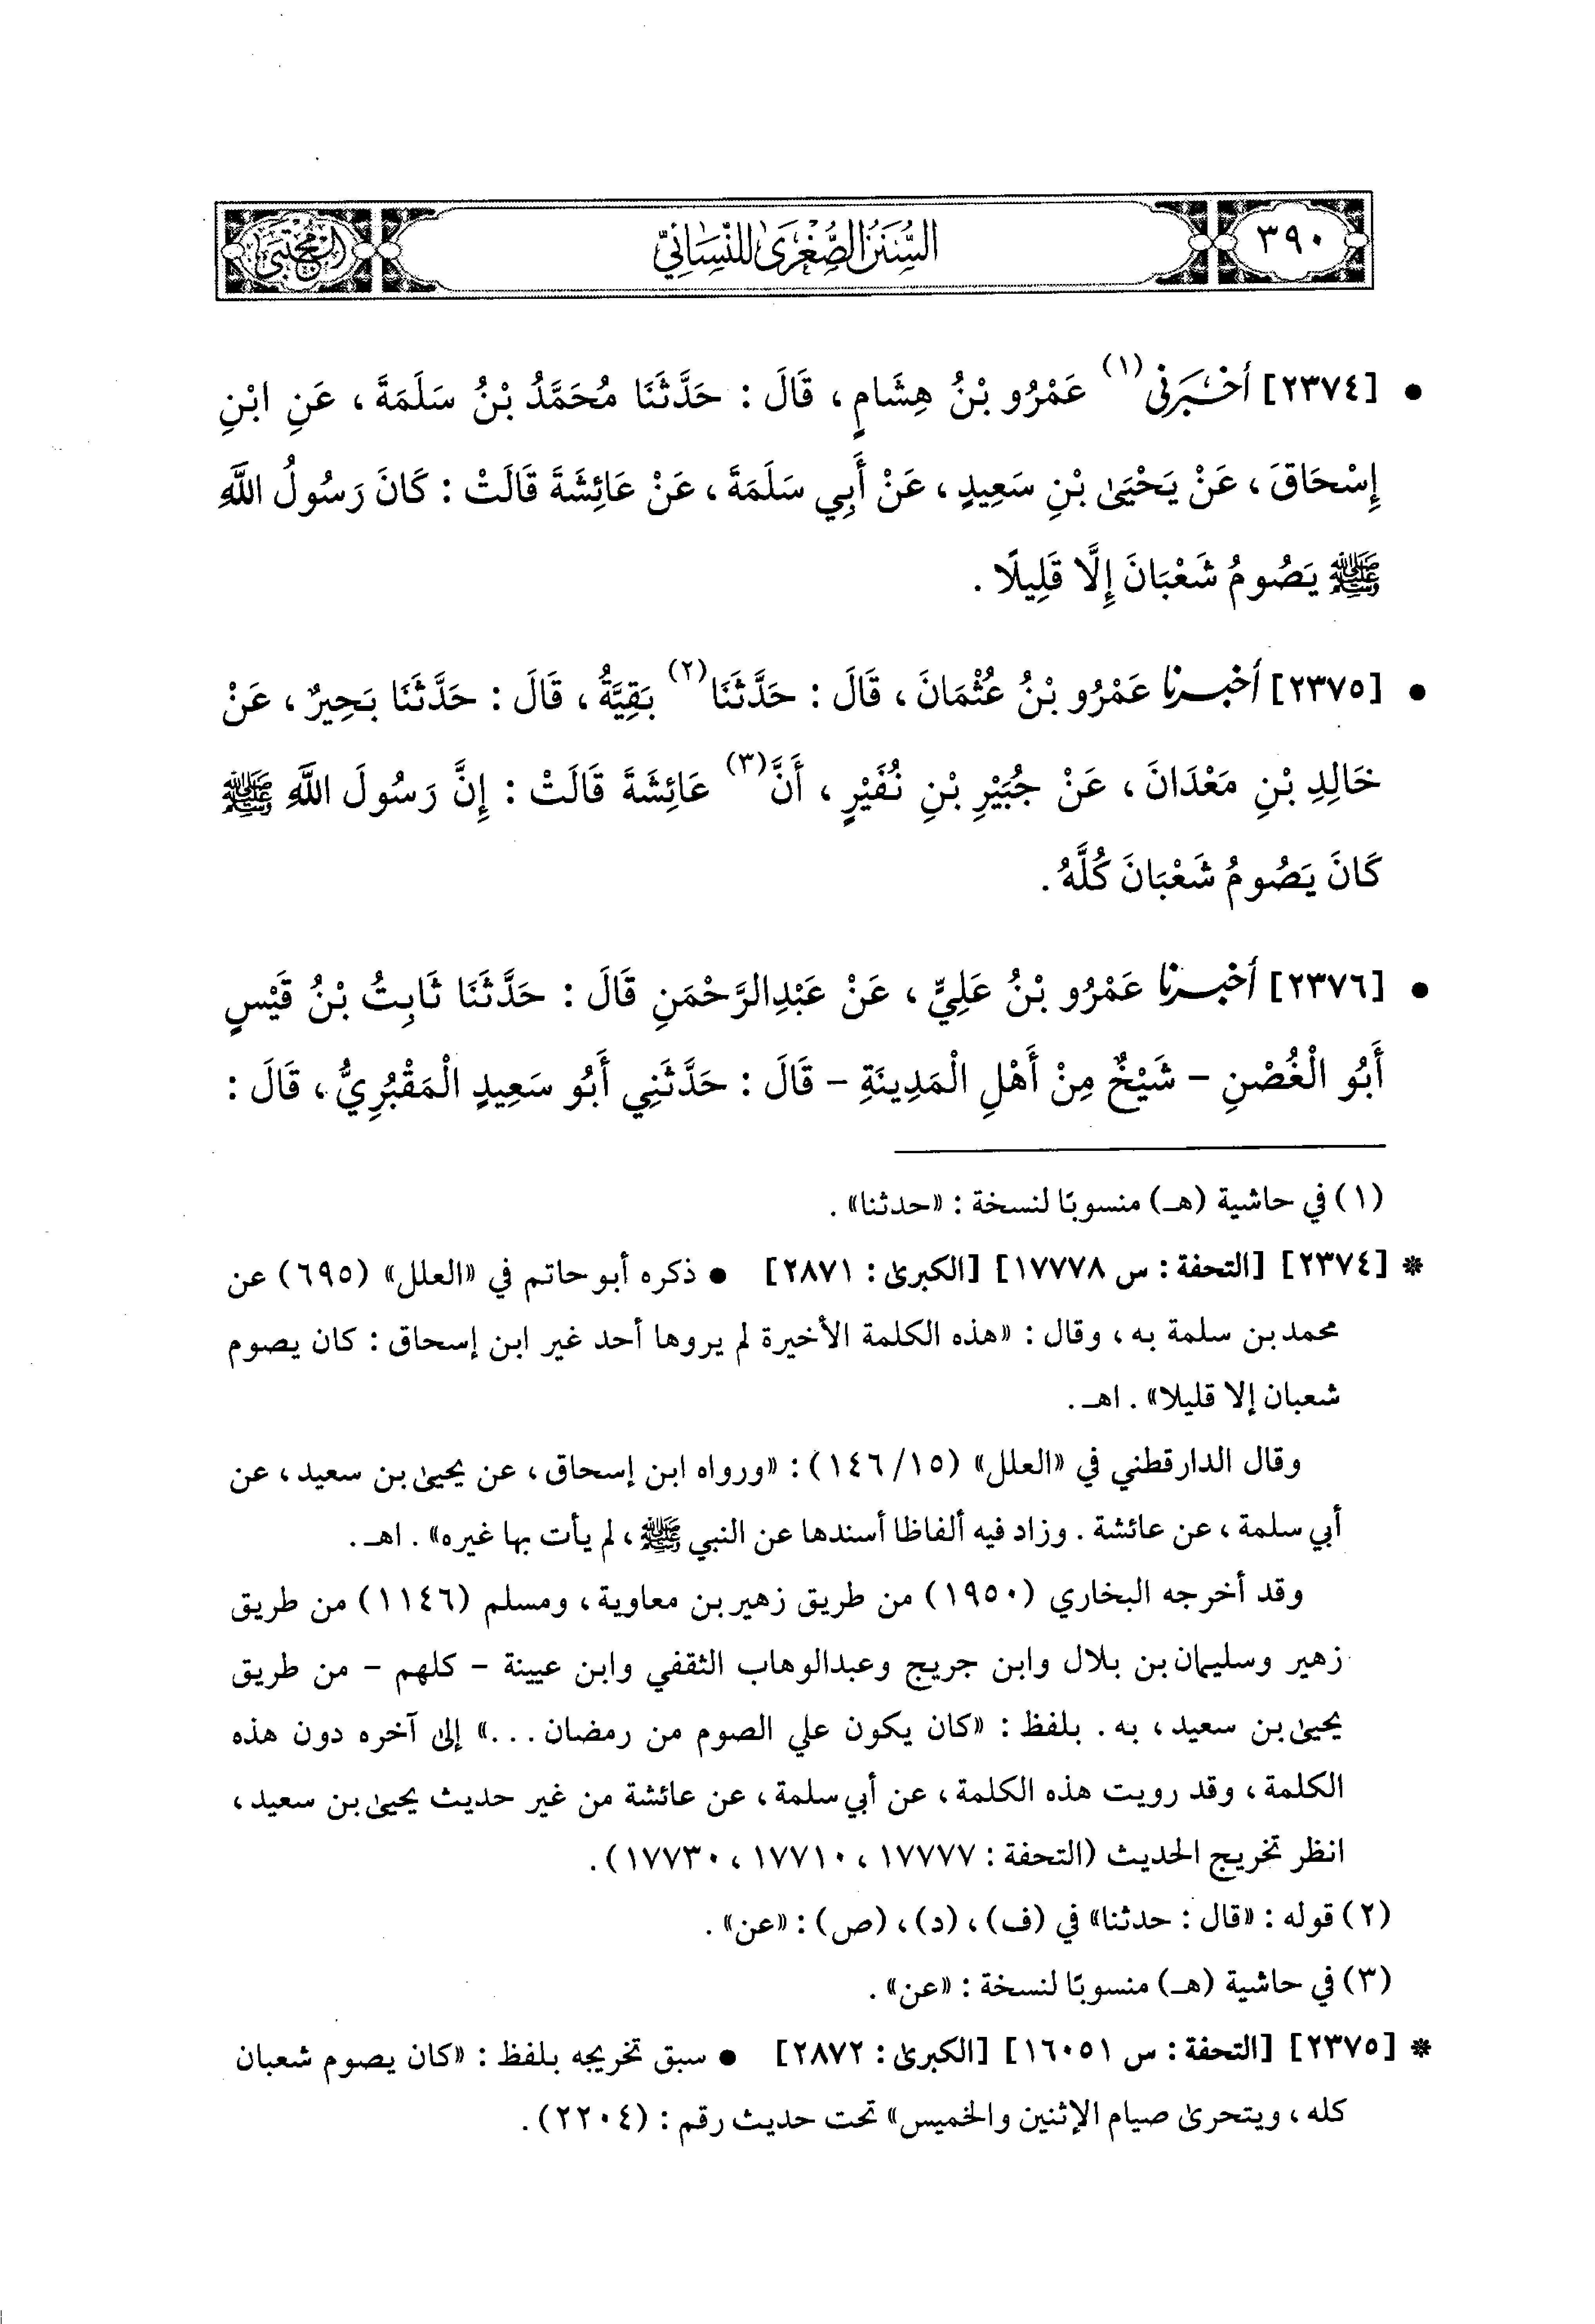 ٣٩٠
السُّنَنُ الصُّغْرَىٰ لِلنَّسَائِيِّ
المجتبى
• [٢٣٧٤] أَخْبَرَنِي (١) عَمْرُو بْنُ هِشَامٍ، قَالَ : حَدَّثَنَا مُحَمَّدُ بْنُ سَلَمَةَ، عَنِ ابْنِ
إِسْحَاقَ، عَنْ يَحْيَىٰ بْنِ سَعِيدٍ، عَنْ أَبِي سَلَمَةَ، عَنْ عَائِشَةَ قَالَتْ : كَانَ رَسُولُ اللَّهِ
ﷺ يَصُومُ شَعْبَانَ إِلَّا قَلِيلًا .
• [٢٣٧٥] أَخْبَرَنَا عَمْرُو بْنُ عُثْمَانَ، قَالَ : حَدَّثَنَا (٢) بَقِيَّةُ، قَالَ : حَدَّثَنَا بَحِيرٌ، عَنْ
خَالِدِ بْنِ مَعْدَانَ، عَنْ جُبَيْرِ بْنِ نُفَيْرٍ، أَنَّ (٣) عَائِشَةَ قَالَتْ : إِنَّ رَسُولَ اللَّهِ ﷺ
كَانَ يَصُومُ شَعْبَانَ كُلَّهُ .
• [٢٣٧٦] أَخْبَرَنَا عَمْرُو بْنُ عَلِيٍّ، عَنْ عَبْدِالرَّحْمَنِ قَالَ : حَدَّثَنَا ثَابِتُ بْنُ قَيْسٍ
أَبُو الْغُصْنِ - شَيْخٌ مِنْ أَهْلِ الْمَدِينَةِ - قَالَ : حَدَّثَنِي أَبُو سَعِيدٍ الْمَقْبُرِيُّ، قَالَ :
(١) في حاشية (هـ) منسوبًا لنسخة : «حدثنا» .
* [٢٣٧٤] [التحفة : س ١٧٧٧٨] [الكبرىٰ : ٢٨٧١] • ذكره أبو حاتم في «العلل» (٦٩٥) عن
محمد بن سلمة به، وقال : «هذه الكلمة الأخيرة لم يروها أحد غير ابن إسحاق : كان يصوم
شعبان إلا قليلا» . اهـ .
وقال الدارقطني في «العلل» (١٥/ ١٤٦) : «ورواه ابن إسحاق، عن يحيىٰ بن سعيد، عن
أبي سلمة، عن عائشة . وزاد فيه ألفاظا أسندها عن النبي ﷺ، لم يأت بها غيره» . اهـ .
وقد أخرجه البخاري (١٩٥٠) من طريق زهير بن معاوية، ومسلم (١١٤٦) من طريق
زهير وسليمان بن بلال وابن جريج وعبدالوهاب الثقفي وابن عيينة - كلهم - من طريق
يحيىٰ بن سعيد، به . بلفظ : «كان يكون علي الصوم من رمضان ...» إلىٰ آخره دون هذه
الكلمة، وقد رويت هذه الكلمة، عن أبي سلمة، عن عائشة من غير حديث يحيىٰ بن سعيد،
انظر تخريج الحديث (التحفة : ١٧٧٧٧، ١٧٧١٠، ١٧٧٣٠) .
(٢) قوله : «قال : حدثنا» في (ف)، (د)، (ص) : «عن» .
(٣) في حاشية (هـ) منسوبًا لنسخة : «عن» .
* [٢٣٧٥] [التحفة : س ١٦٠٥١] [الكبرىٰ : ٢٨٧٢] • سبق تخريجه بلفظ : «كان يصوم شعبان
كله، ويتحرىٰ صيام الإثنين والخميس» تحت حديث رقم : (٢٢٠٤) .